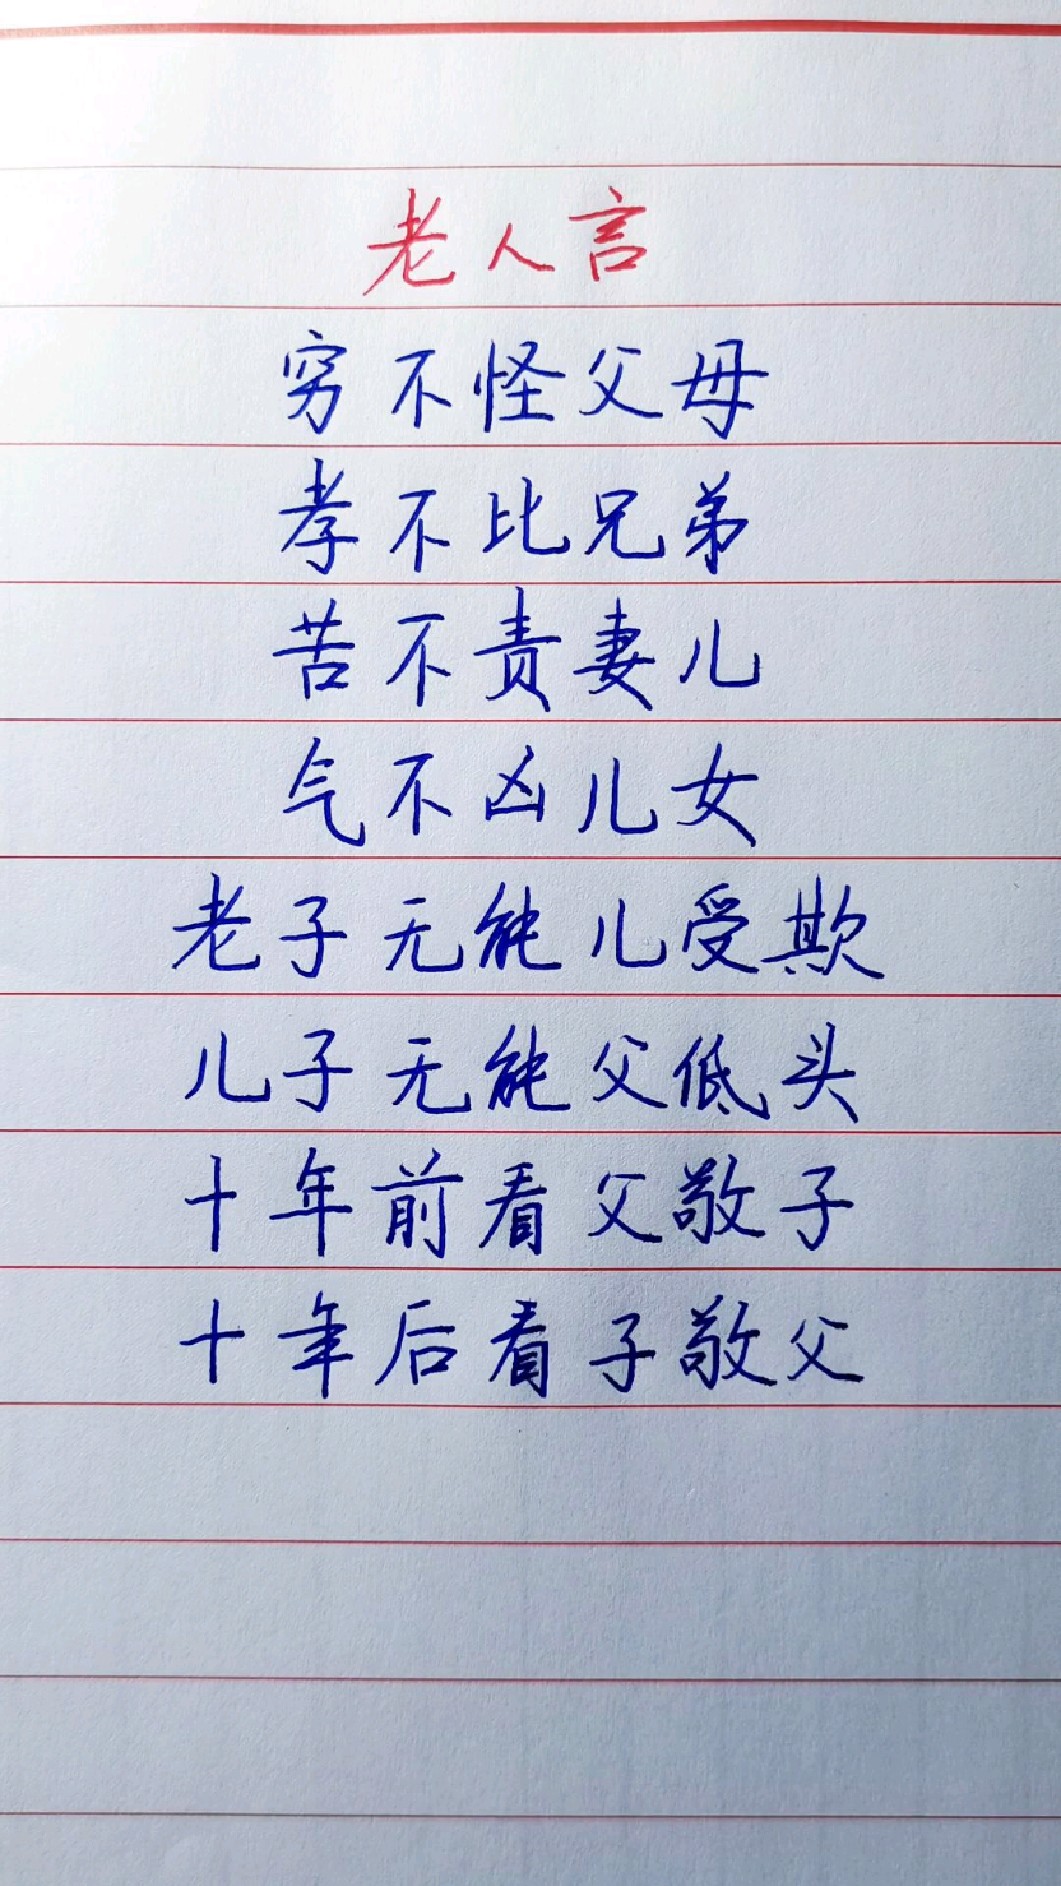 老人言
穷不怪父母
孝不比兄弟
苦不责妻儿
气不凶儿女
老子无能儿受欺
儿子无能父低头
十年前看父敬子
十年后看子敬父